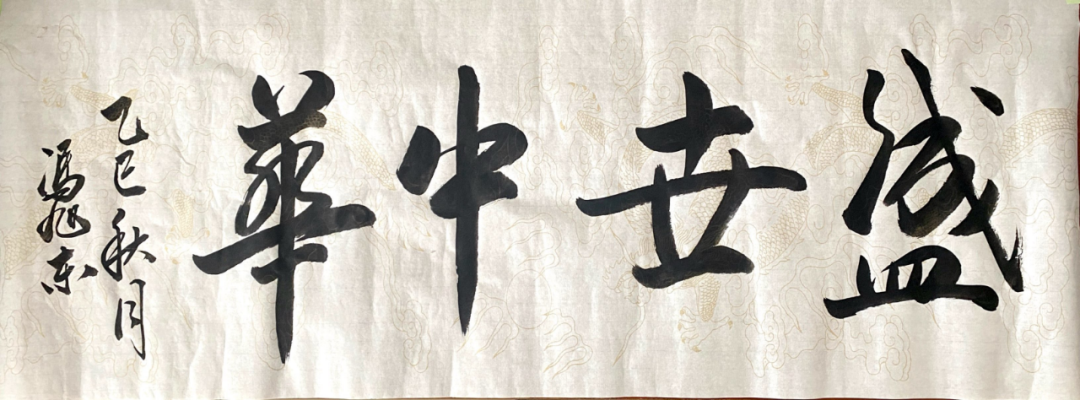 盛世中華
乙巳秋月
馮旭东